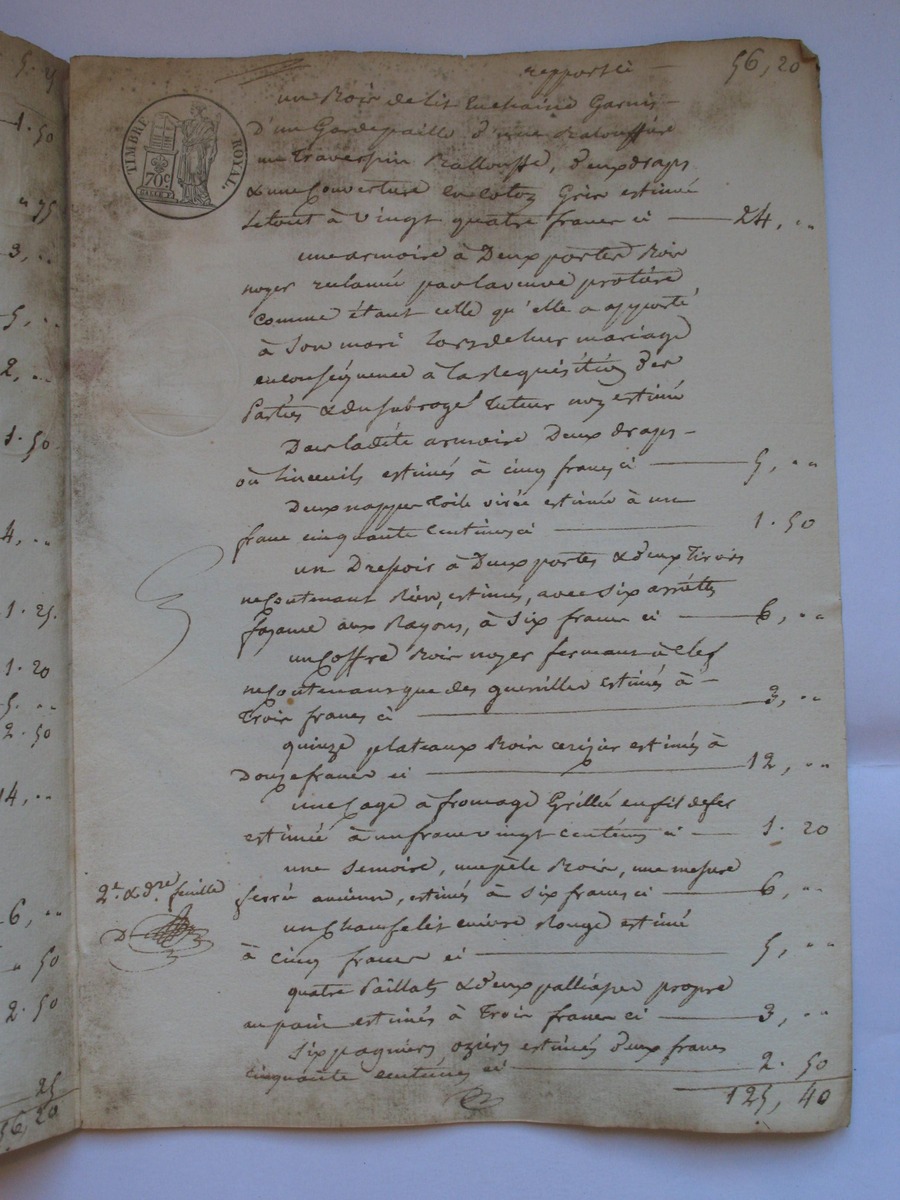 5. 25
1. 50
" 75
3, ..
5, ..
2, ..
1. 50
4, ..
1. 25.
1. 20
5. ..
2. 50
14, ..
6, ..
" 50
2. 50
25
56, 20
TIMBRE ROYAL.
70c
rapport ci — 56, 20
un Bois de lit Enchaine Garnis —
D'un Gardepaille d'une Baloufière
un Traversin Ballouffe, deux draps
& une Couverture en coton Gris estimé
le tout à Vingt quatre francs ci — 24, ..
une armoire à Deux portes Bois
noyer reclamée par la veuve protière
comme étant celle qu'elle a apporté
à Son mari lors de leur mariage
en conséquence à la Requisition des
Parties & du Subrogé Tuteur non estimée
Dans ladite armoire Deux draps —
ou linceuils estimés à cinq francs ci — 5, ..
Deux nappes Toile estimée à un
franc cinquante Centimes ci — 1. 50
un Dressoir à Deux portes & deux Tiroirs
ne Contenant Rien, estimés, avec Six assiettes
fayance aux Rayons, à Six francs ci — 6, ..
un Coffre Bois noyer fermant à Clef
ne Contenans que des guenilles estimés à —
Trois francs ci — 3, ..
quinze plateaux Bois cerisier estimés à
Douze francs ci — 12, ..
une Cage à fromage Grillée en fil de fer
estimée à un franc vingt centimes ci — 1. 20
une Semoire, une pèle Bois, une mesure
ferrée ancienne, estimés à Six francs ci — 6, ..
un Chauffelit cuivre Rouge estimé
à cinq francs ci — 5, ..
quatre Paillats & deux palliasses propre
au pain estimés à Trois francs ci — 3, ..
Six pagniers, oziers estimés deux francs
cinquante centimes ci — 2. 50
125, 40
2e. & dre. feuille
D